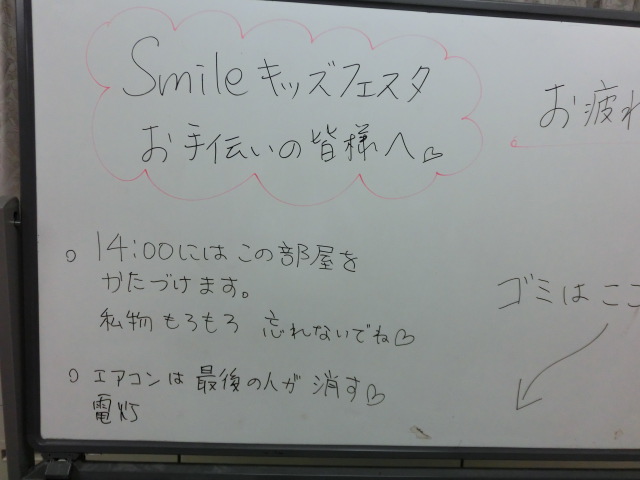 Smile キッズフェスタ
お手伝いの皆様へ♡
お疲れ
○ 14:00にはこの部屋を
かたづけます。
私物もろもろ 忘れないでね♡
○ エアコンは最後の人が消す♡
電灯
ゴミはここ